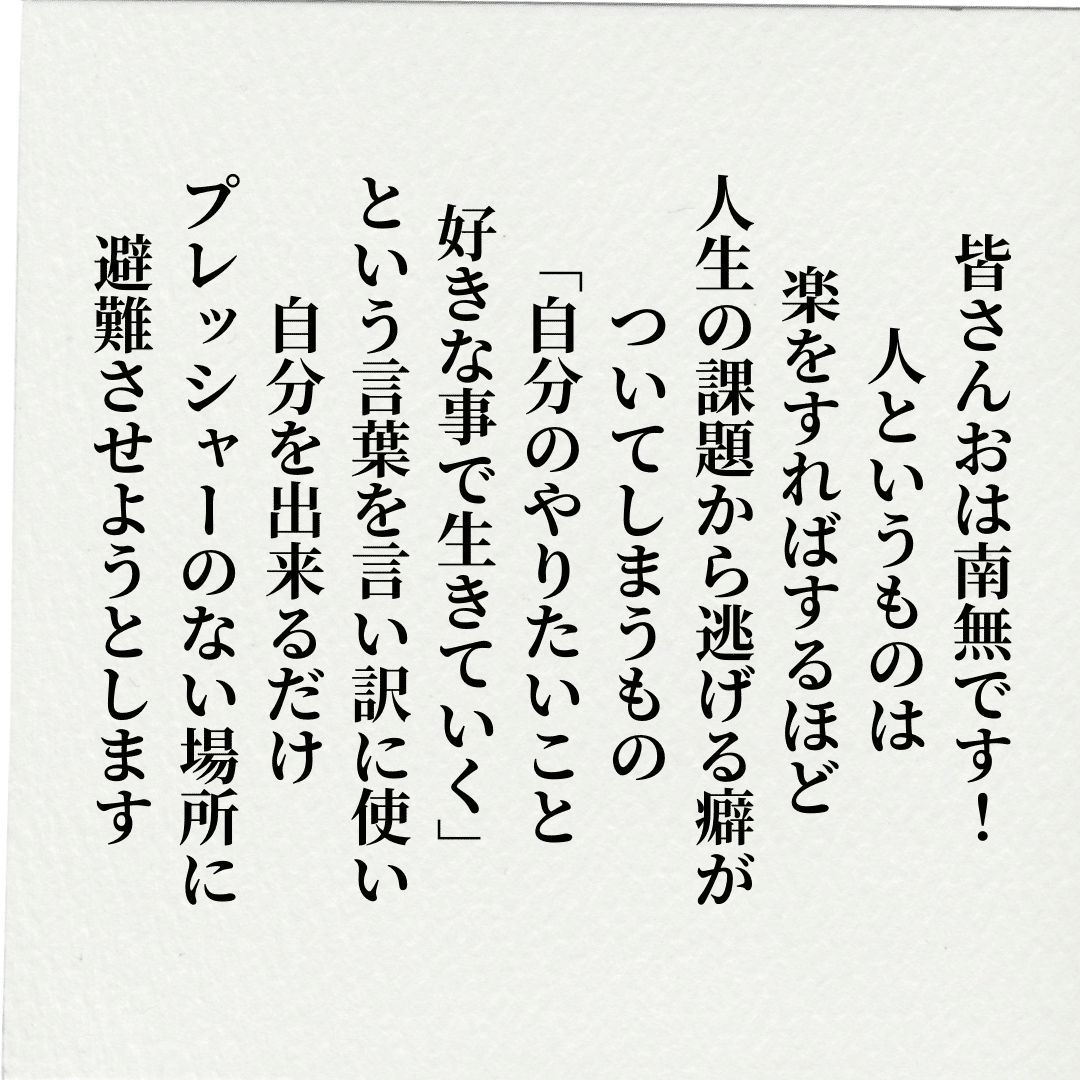 皆さんおは南無です！
人というものは
楽をすればするほど
人生の課題から逃げる癖が
ついてしまうもの
「自分のやりたいこと
好きな事で生きていく」
という言葉を言い訳に使い
自分を出来るだけ
プレッシャーのない場所に
避難させようとします